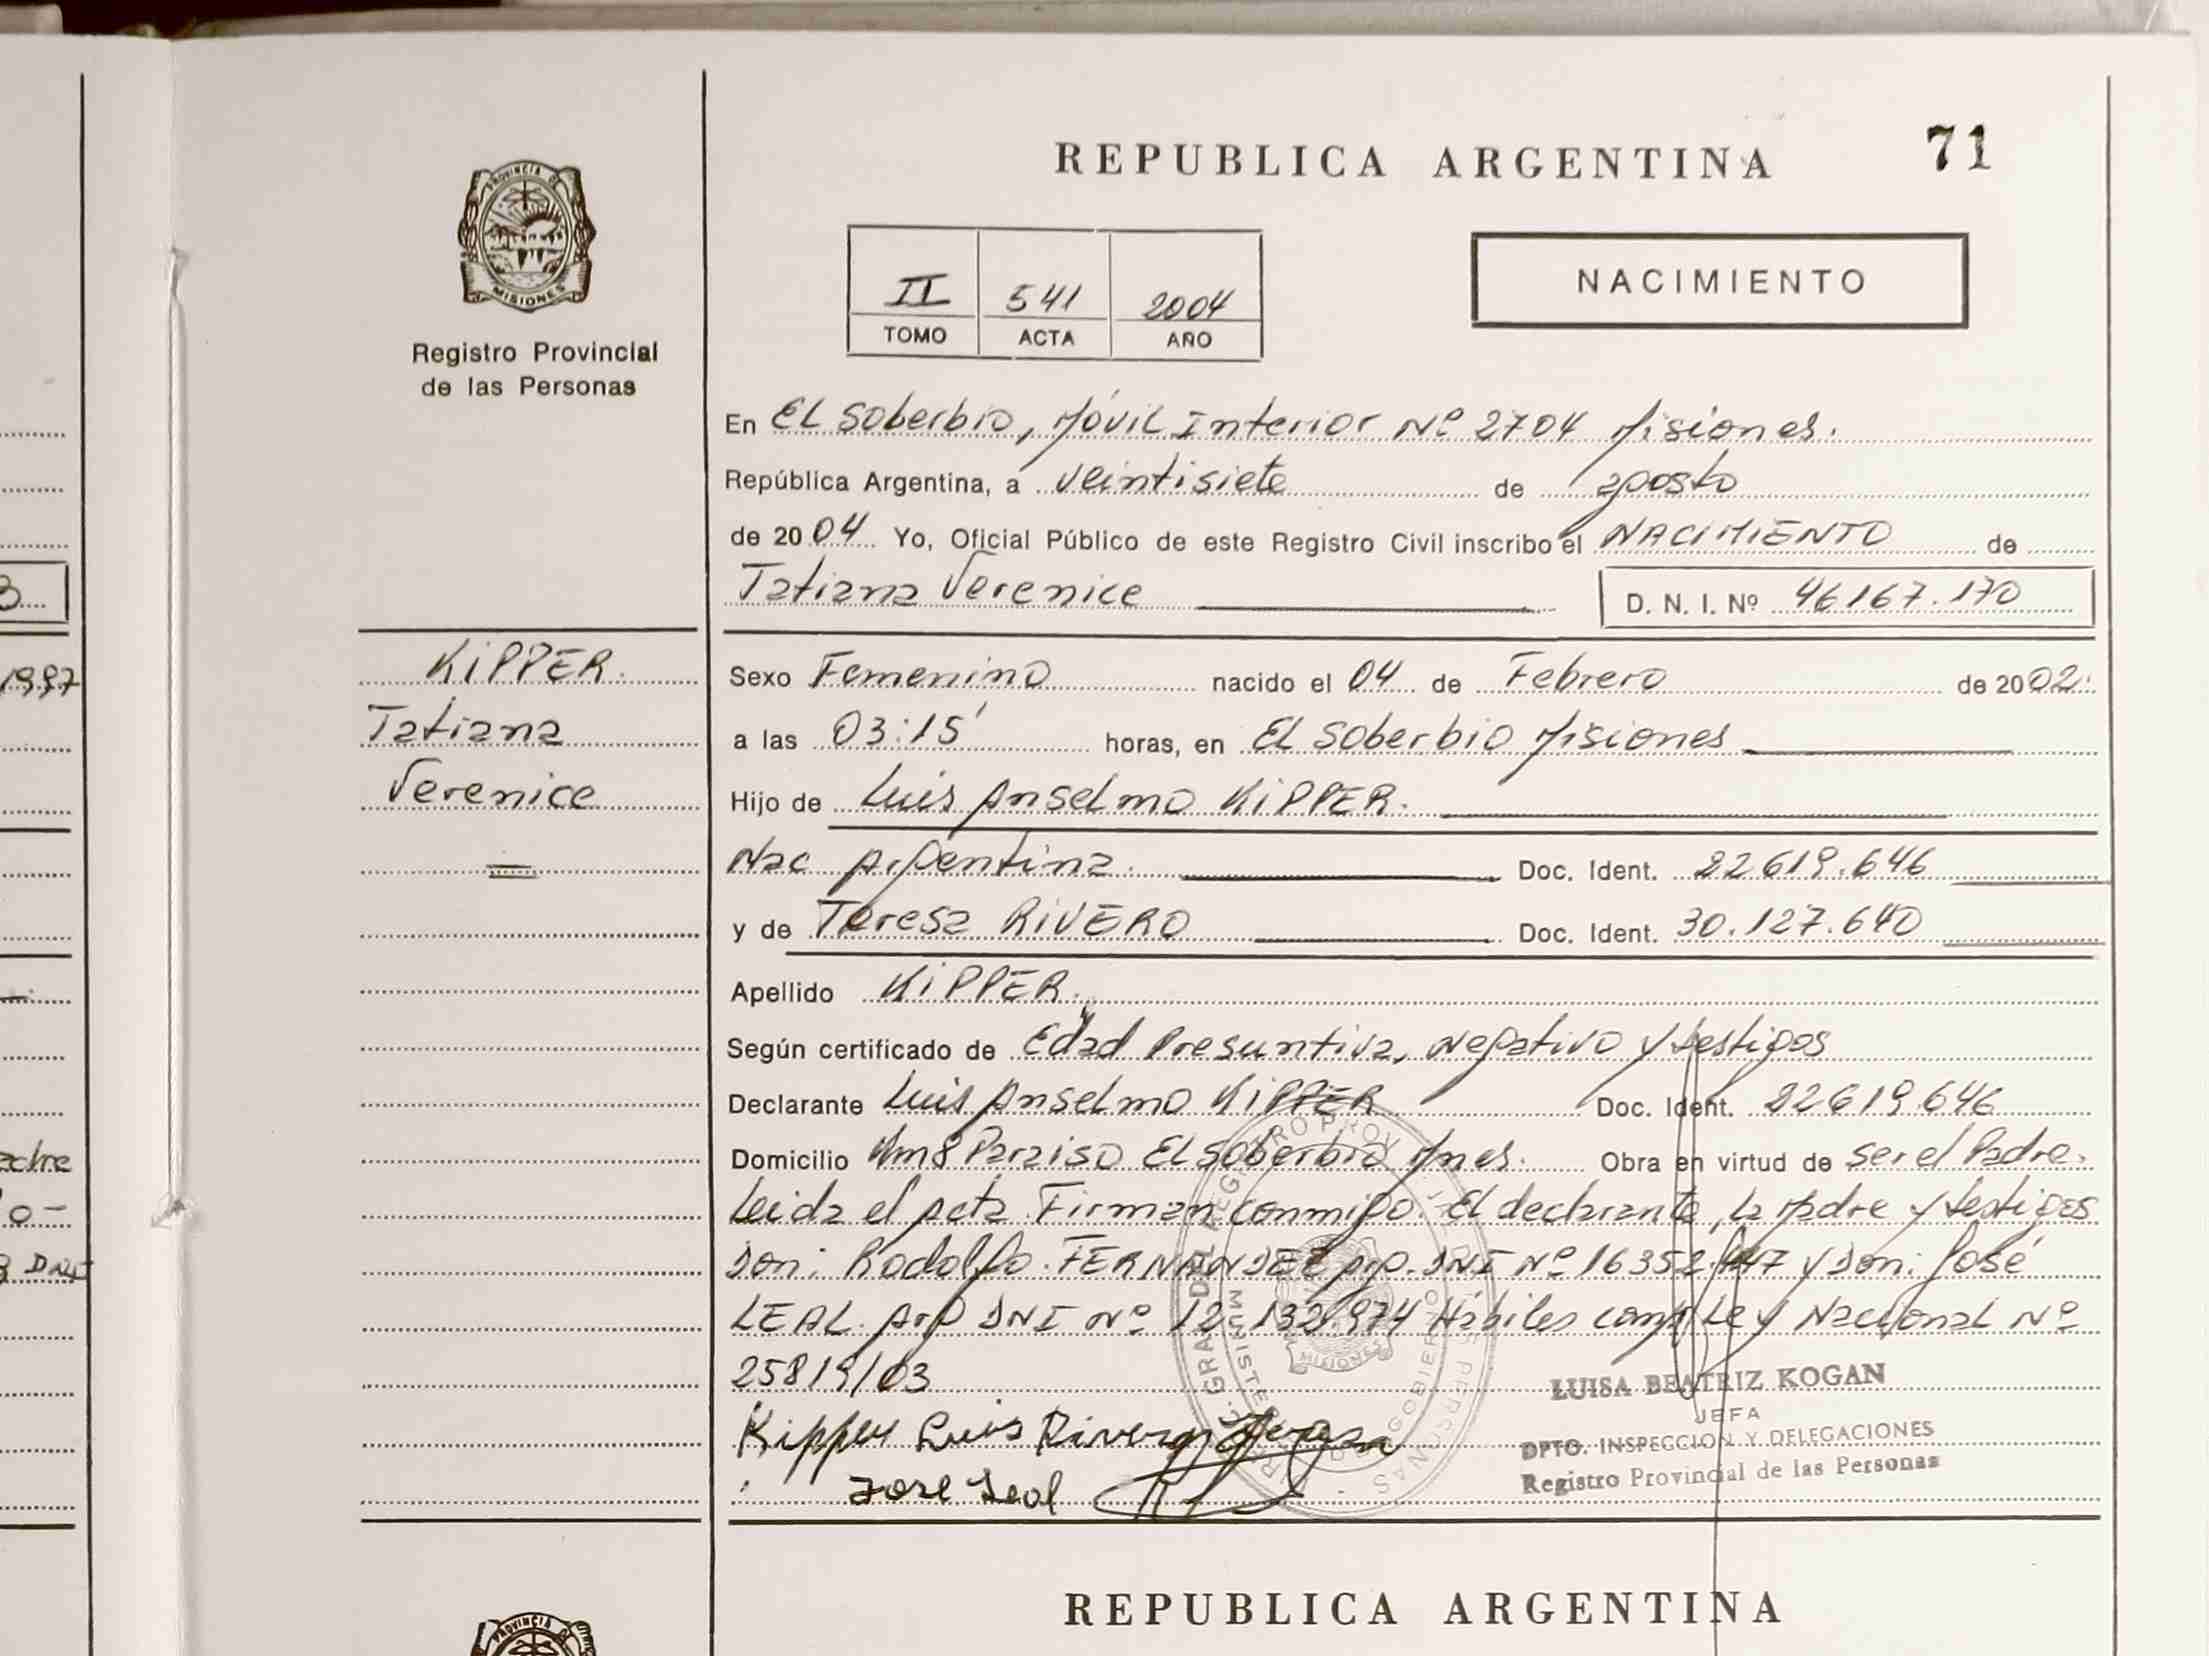 REPUBLICA ARGENTINA
71
PROVINCIA DE
MISIONES
Registro Provincial
de las Personas
II 541 2004
TOMO ACTA AÑO
NACIMIENTO
En El Soberbio, Móvil Interior Nº 2704 Misiones.
República Argentina, a veintisiete de agosto
de 2004 Yo, Oficial Público de este Registro Civil inscribo el NACIMIENTO de
Tatiana Verenice D. N. I. Nº 46167.170
KIPPER.
Tatiana
Verenice
Sexo Femenino nacido el 04 de Febrero de 2002.
a las 03:15' horas, en El Soberbio Misiones
Hijo de Luis Anselmo KIPPER.
Nac Argentina. Doc. Ident. 22619.646
y de Teresa RIVERO Doc. Ident. 30.127.640
Apellido KIPPER.
Según certificado de Edad Presuntiva, Negativo y testigos
Declarante Luis Anselmo KIPPER Doc. Ident. 22619.646
Domicilio Km8 Paraiso El Soberbio Mnes. Obra en virtud de ser el Padre.
Leida el Acta Firman conmigo. El declarante, la Madre y testigos
Don: Rodolfo FERNANDEZ Arg. DNI Nº 16352. y Don: José
LEAL. Arg DNI Nº 12.132.974 Hábiles conf Ley Nacional Nº
25819/03
Kipper Luis Rivero Teresa
Jose Leal
LUISA BEATRIZ KOGAN
JEFA
DPTO. INSPECCION Y DELEGACIONES
Registro Provincial de las Personas
MISIONES
REPUBLICA ARGENTINA
PROVINCIA DE
3
1997
adre
o-
DNI